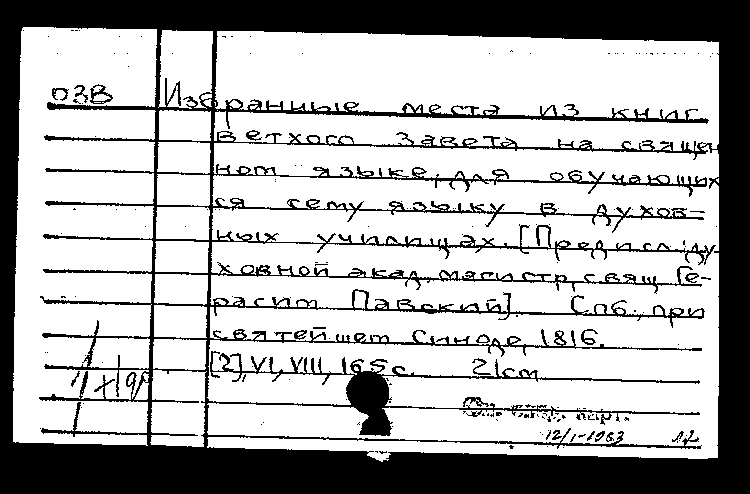 ОЗВ Избранные места из книг
ветхого завета на священ
ном языке, для обучающих
ся сему языку в духов-
ных училищах. [Предисл.: ду-
ховной акад. магистр, свящ. Ге-
расим Павский]. Спб., при
святейшем Синоде, 1816.
[2], VI, VIII, 165 с. 21см
12/I-1963